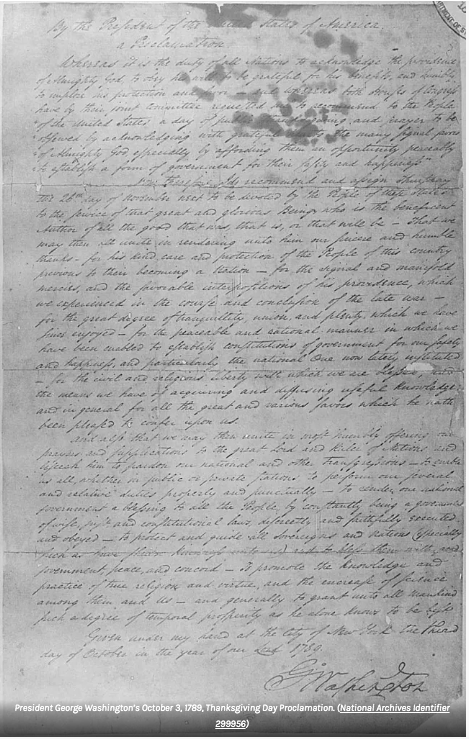 By the President of the United States of America.
a Proclamation.
Whereas it is the duty of all Nations to acknowledge the providence
of Almighty God to obey his will, to be grateful for his benefits, and humbly
to implore his protection and favor — and whereas both Houses of Congress
have by their joint Committee requested me to recommend to the People
of the United States a day of public thanksgiving and prayer to be
observed by acknowledging with grateful hearts the many signal favors
of Almighty God especially by affording them an opportunity peaceably
to establish a form of government for their safety and happiness
Now therefore I do recommend and assign Thursday
the 26th day of November next to be devoted by the People of these States
to the service of that great and glorious Being, who is the beneficent
Author of all the good that was, that is, or that will be — That we
may then all unite in rendering unto him our sincere and humble
thanks — for his kind care and protection of the People of this country
previous to their becoming a Nation — for the signal and manifold
mercies, and the favorable interpositions of his providence, which
we experienced in the course and conclusion of the late war —
for the great degree of tranquillity, union, and plenty, which we have
since enjoyed — for the peaceable and rational manner in which we
have been enabled to establish constitutions of government for our safety
and happiness, and particularly the national One now lately instituted
— for the civil and religious liberty with which we are blessed, and
the means we have of acquiring and diffusing useful knowledge
and in general for all the great and various favors which he hath
been pleased to confer upon us.
And also that we may then unite in most humbly offering our
prayers and supplications to the great Lord and Ruler of Nations and
beseech him to pardon our national and other transgressions — to enable
us all, whether in public or private stations, to perform our several
and relative duties properly and punctually — to render our national
government a blessing to all the People, by constantly being a government
of wise, just and constitutional laws, discreetly and faithfully executed
and obeyed — to protect and guide all Sovereigns and Nations (especially
such as have shewn kindness unto us) and to bless them with good
government, peace, and concord — To promote the knowledge and
practice of true religion and virtue, and the encrease of science
among them and Us — and generally to grant unto all mankind
such a degree of temporal prosperity as he alone knows to be best
Given under my hand at the City of New York the third
day of October in the year of our Lord 1789.
Go Washington
President George Washington's October 3, 1789, Thanksgiving Day Proclamation. (National Archives Identifier
299956)